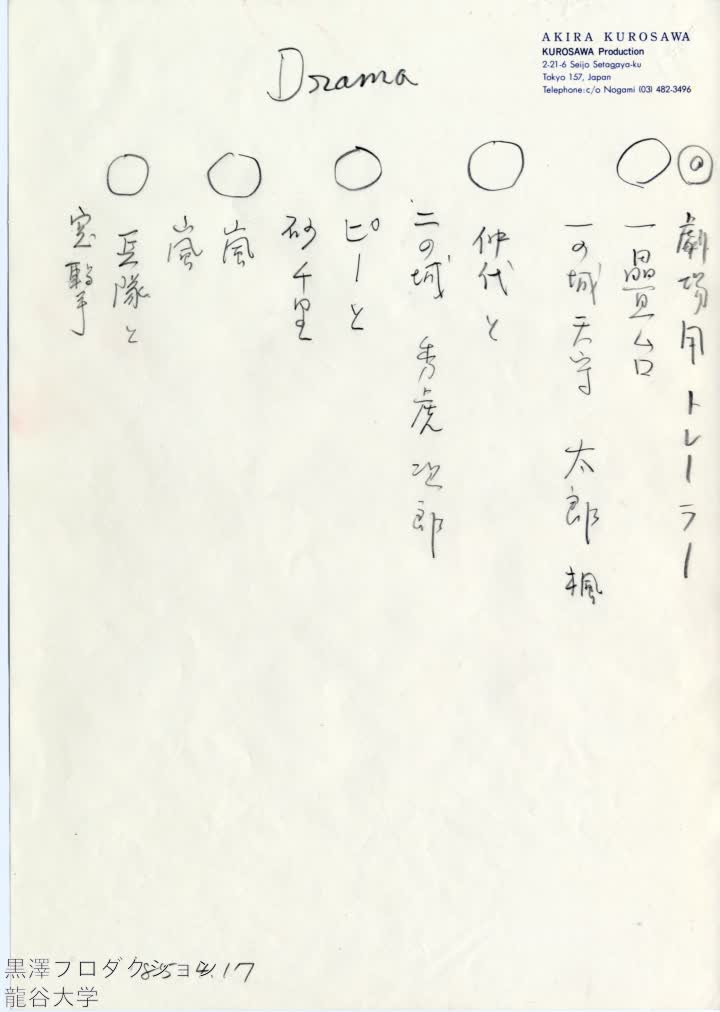 AKIRA KUROSAWA
KUROSAWA Production
2-21-6 Seijo Setagaya-ku
Tokyo 157, Japan
Telephone: c/o Nogami (03) 482-3496
Drama
◎劇場用トレーラー
○
一の城 天守 太郎 楓
○仲代と
二の城 秀虎 次郎
○ピーと
砂千里
○嵐
嵐
○兵隊と
撃
85 4.17
黒澤プロダクション
龍谷大学